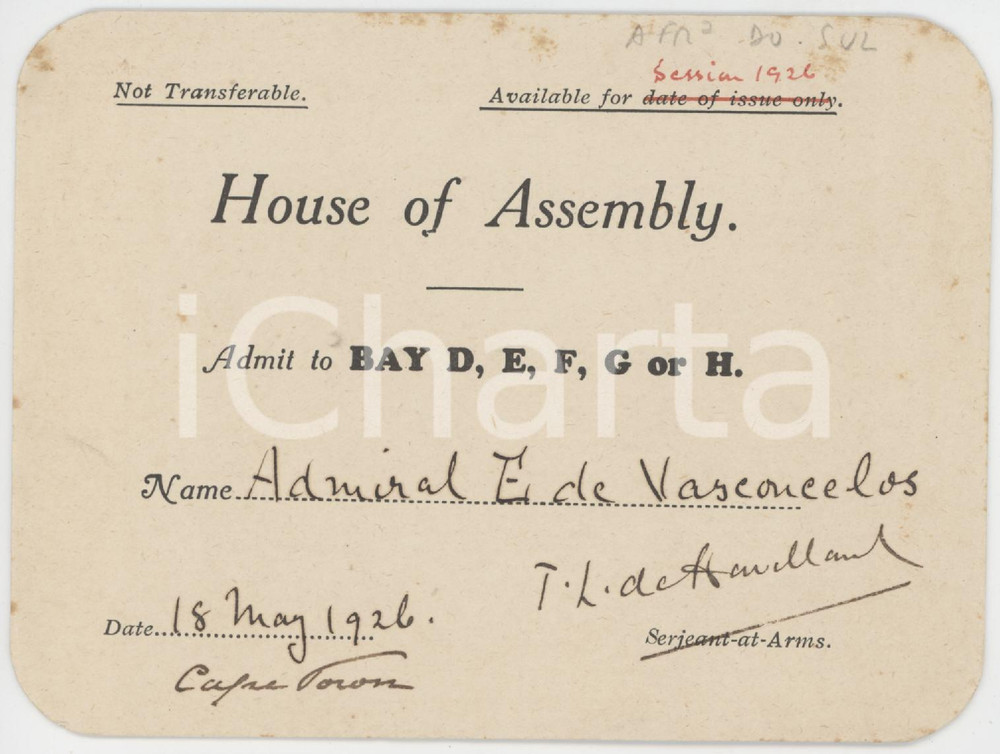 AFRª DO. SUL
Session 1926
Not Transferable.
Available for date of issue only.
House of Assembly.
Admit to BAY D, E, F, G or H.
iCharta
Name Admiral E de Vasconcelos
T. L. de Havilland
Date 18 May 1926.
Serjeant-at-Arms.
Cape Town